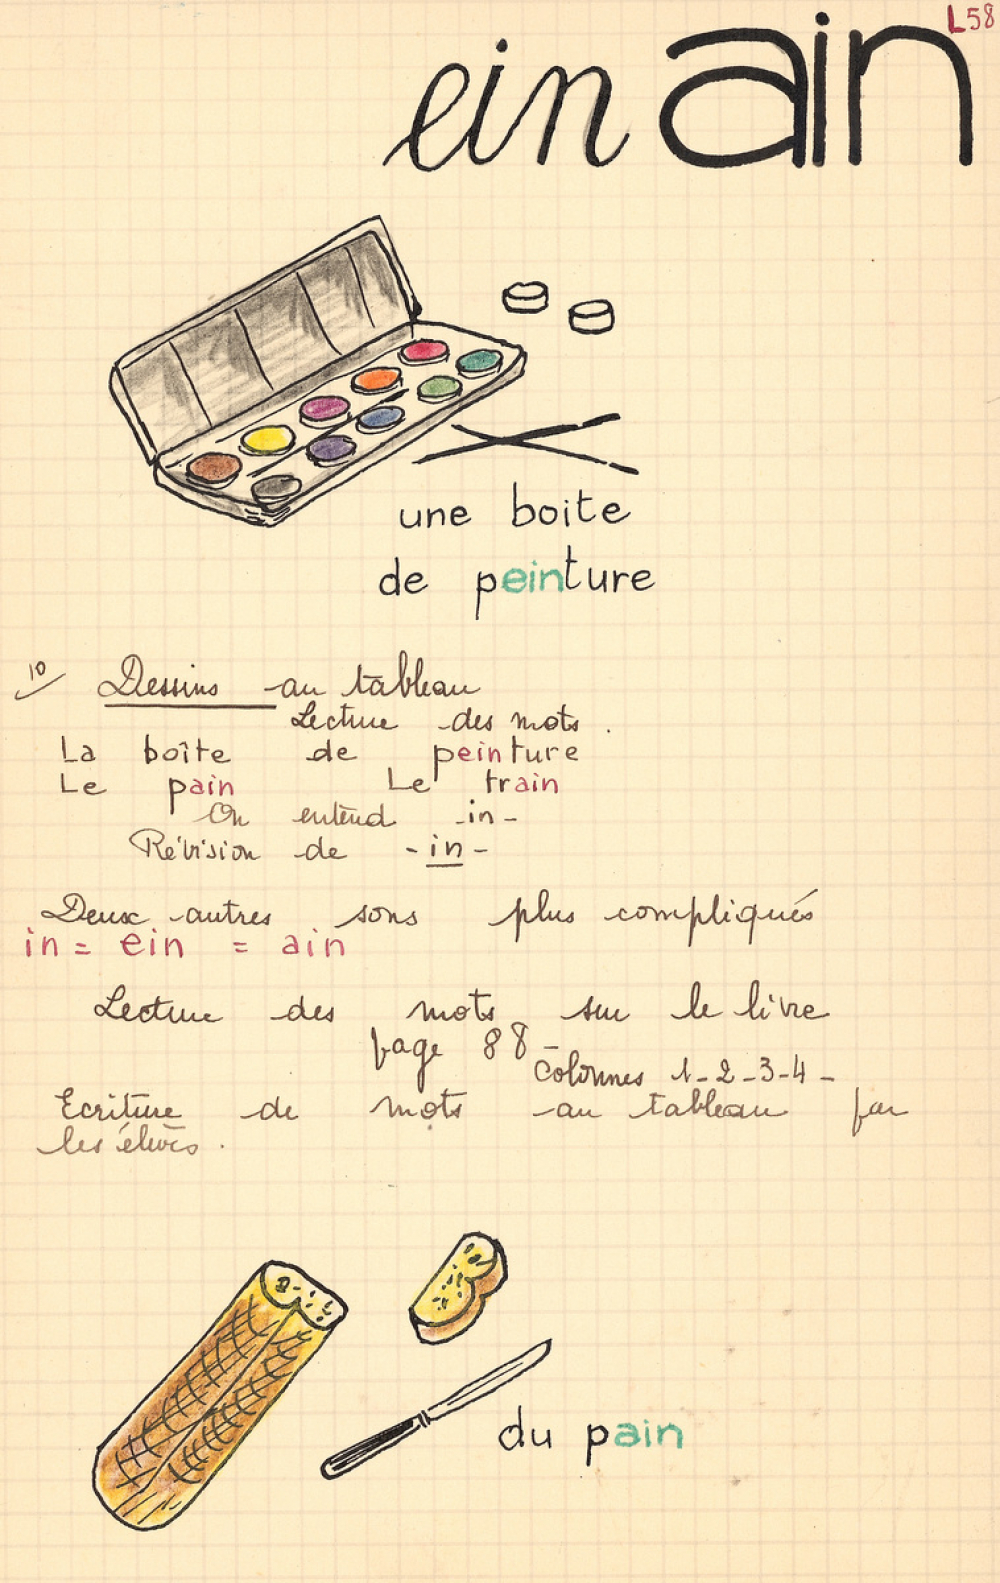 L58
ein ain
une boite
de peinture
1º/ Dessins au tableau
Lecture des mots.
La boîte de peinture
Le pain Le train
On entend -in-
Révision de -in-
Deux autres sons plus compliqués
in = ein = ain
Lecture des mots sur le livre
page 88-
Colonnes 1-2-3-4-
Ecriture de mots au tableau par
les élèves.
du pain